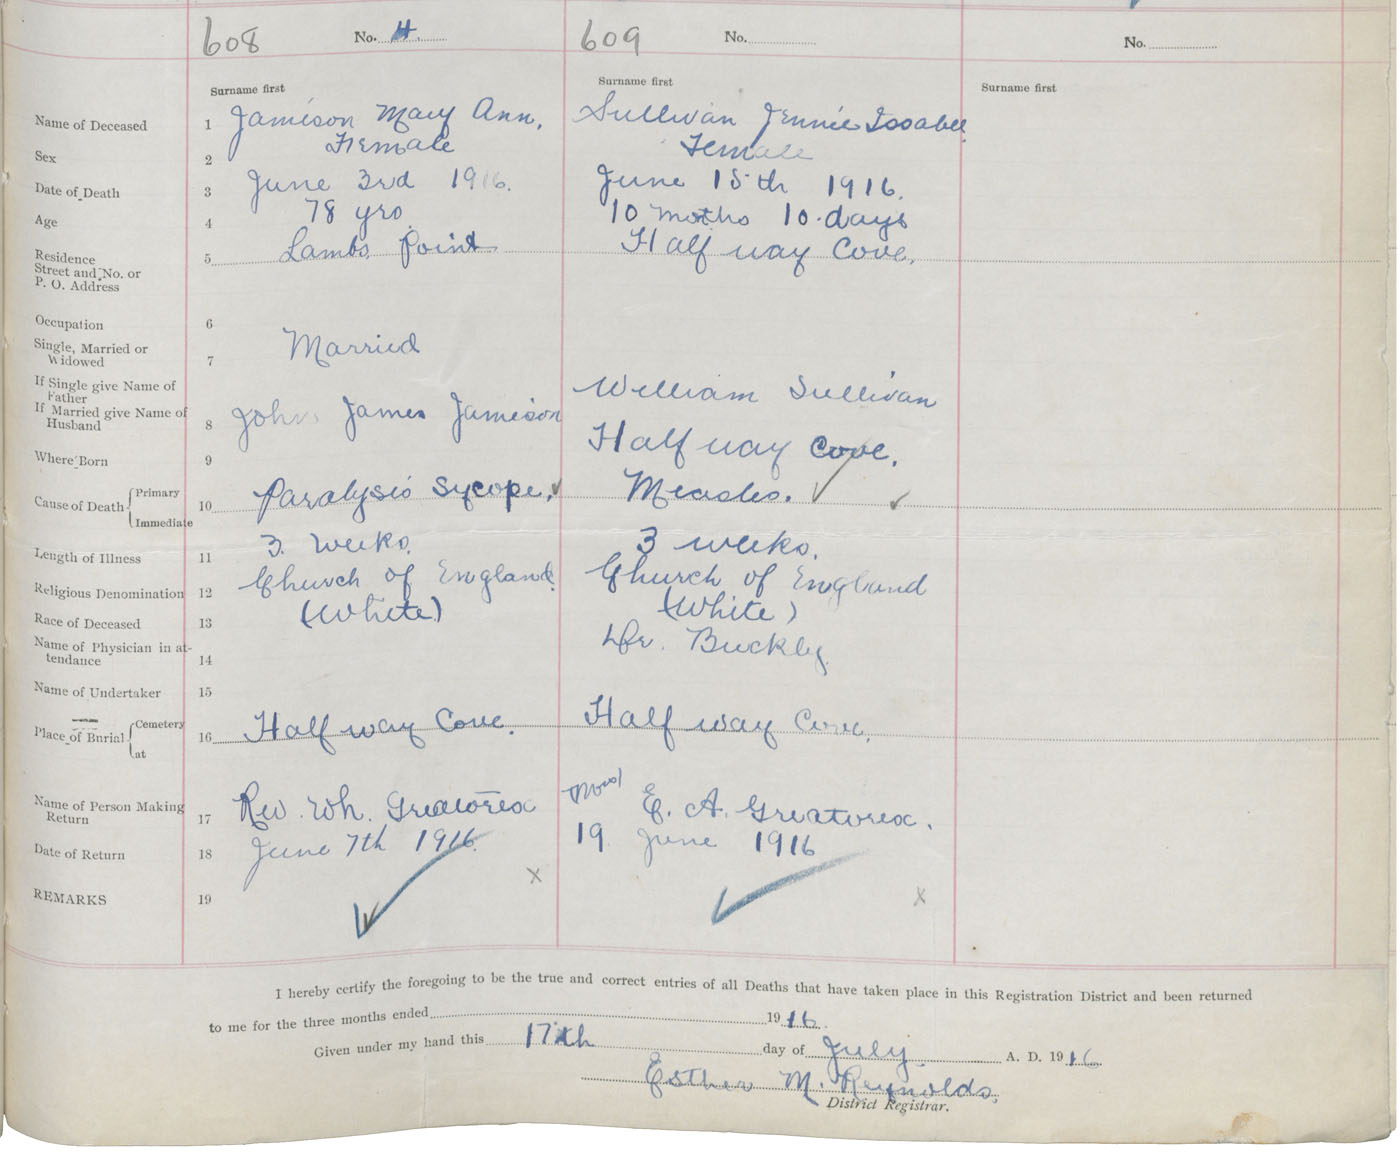 608 No. 4 609 No. No.
Surname first Surname first Surname first
Name of Deceased 1 Jamieson Mary Ann. Sullivan Jennie Issabell
Sex 2 Female Female
Date of Death 3 June 3rd 1916. June 15th 1916.
Age 4 78 yrs 10 moths 10 days
Residence 5 Lambs Point Half way Cove.
Street and No. or
P. O. Address
Occupation 6
Single, Married or
Widowed 7 Married
If Single give Name of
Father William Sullivan
If Married give Name of
Husband 8 John James Jamieson
Where Born 9 Half way Cove.
Cause of Death Primary 10 Paralysis Sycope. Measles.
Immediate
Length of Illness 11 3 weeks. 3 weeks.
Religious Denomination 12 Church of England. Church of England
Race of Deceased 13 (White) (White)
Name of Physician in at-
tendance 14 Dr. Buckley
Name of Undertaker 15
Place of Burial Cemetery 16 Half way Cove. Half way Cove.
at
Name of Person Making
Return 17 Rev. Wm. Greatorex E. A. Greatorex.
Date of Return 18 June 7th 1916 19 June 1916
REMARKS 19 x x
I hereby certify the foregoing to be the true and correct entries of all Deaths that have taken place in this Registration District and been returned
to me for the three months ended 1916.
Given under my hand this 17th day of July A. D. 1916
Esther M. Reynolds.
District Registrar.